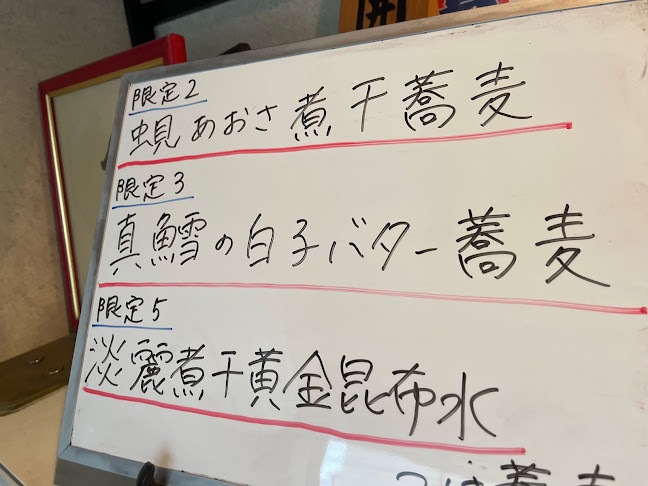 限定2
蜆あおさ煮干蕎麦
限定3
真鱈の白子バター蕎麦
限定5
淡麗煮干黄金昆布水
つけ蕎麦